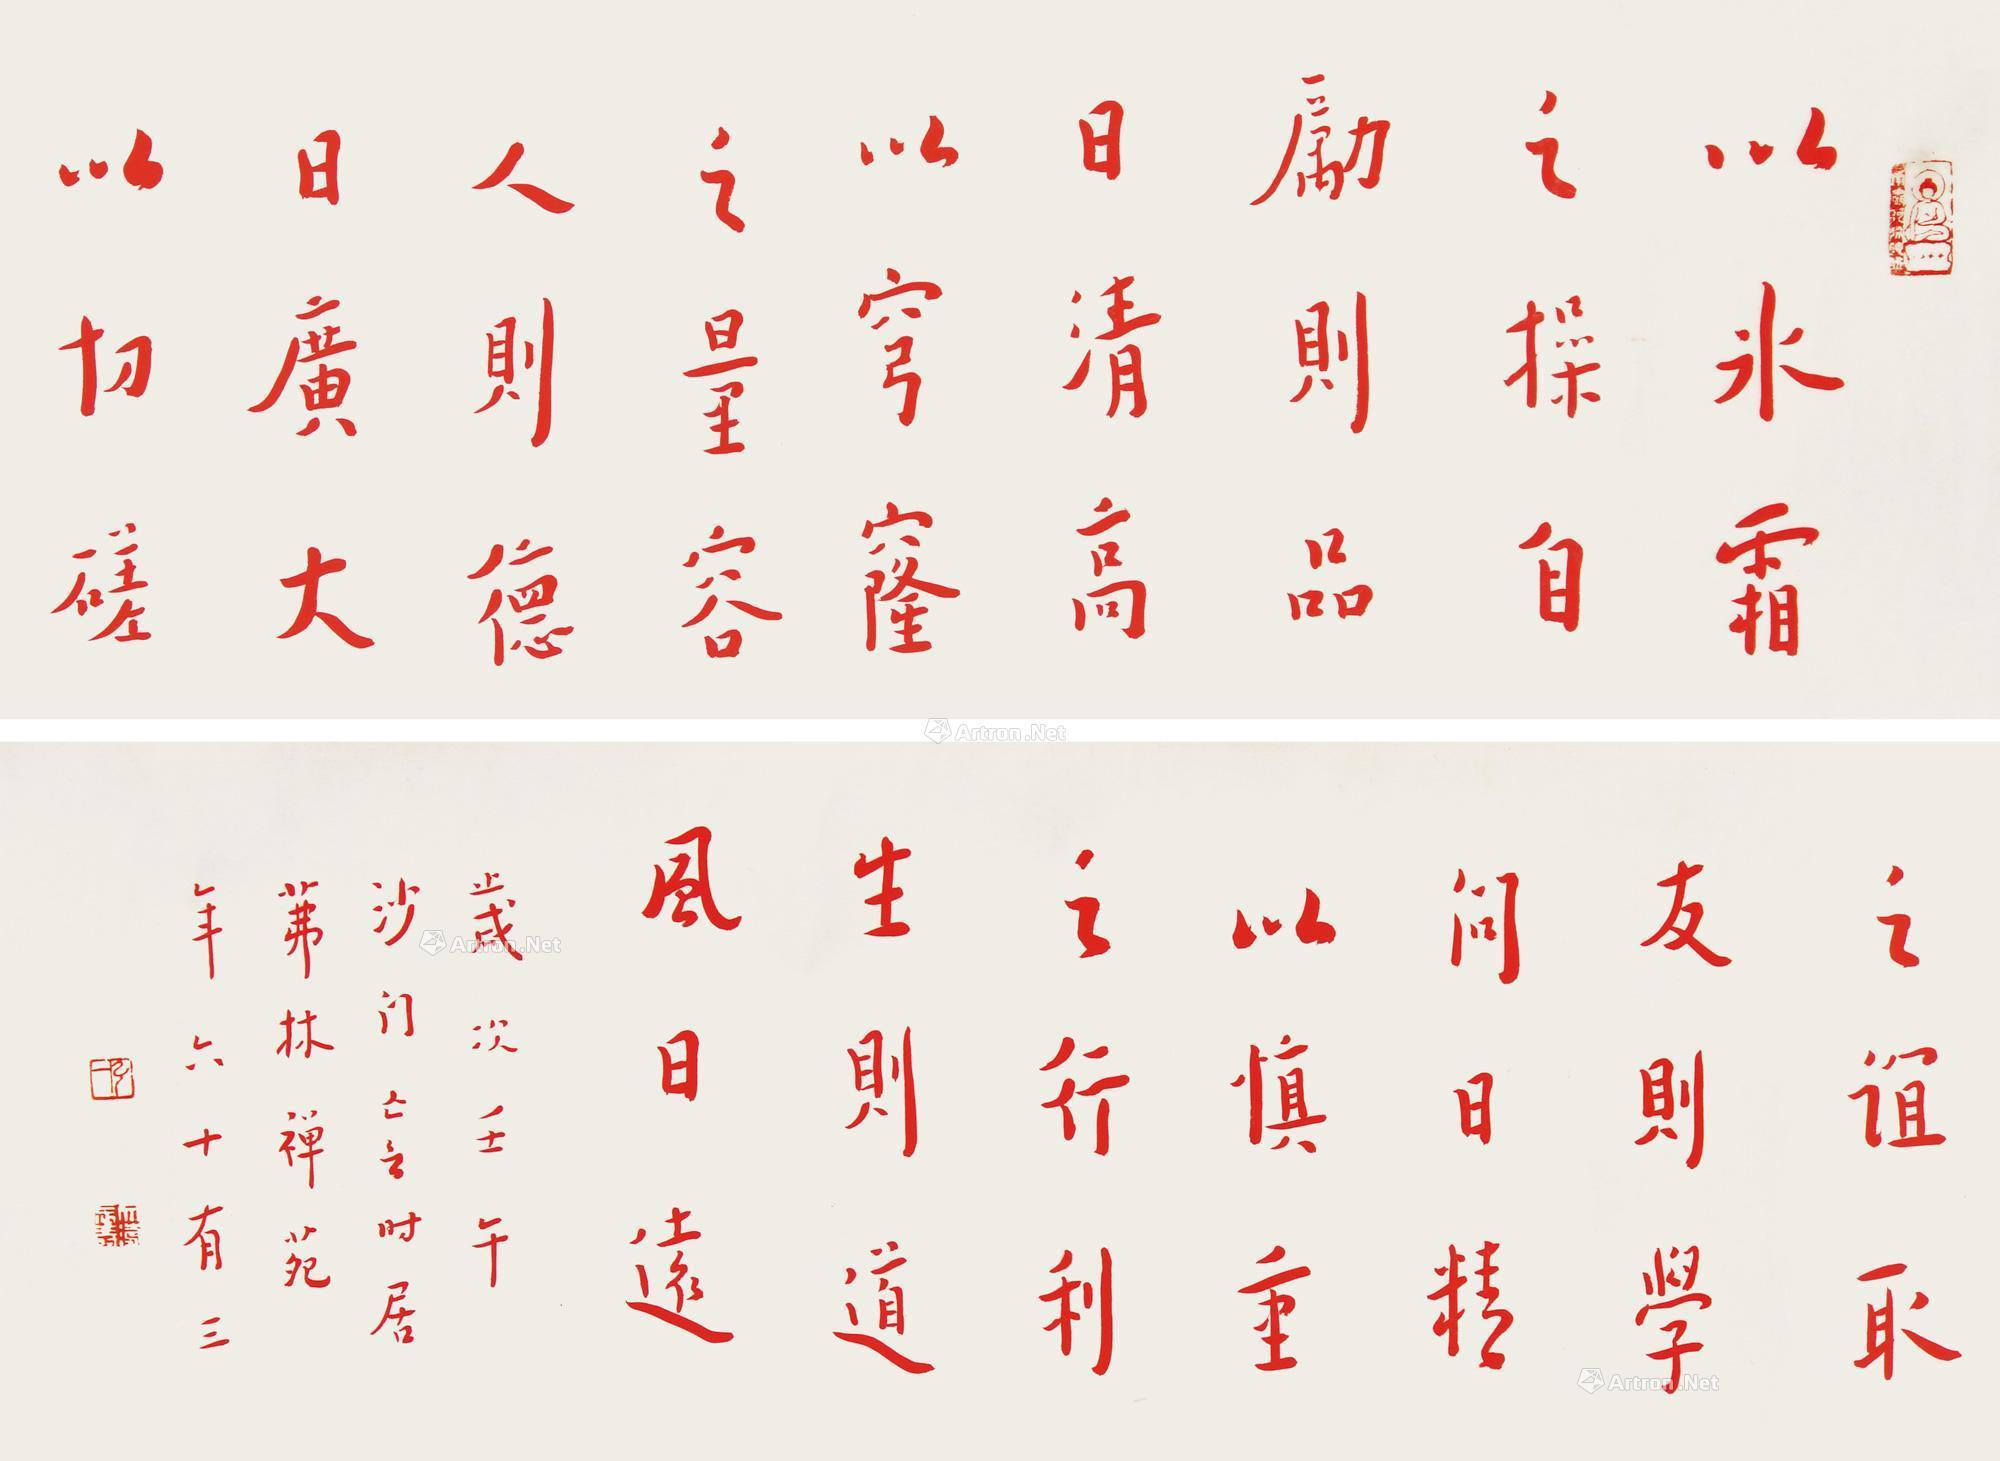 以氷霜
之操自
勵則品
日清高
以穹窿
之量容
人則德
日廣大
以切磋
之谊取
友則學
问日精
以慎重
之行利
生則道
風日遠
歲次壬午
沙门亡言时居
茀林禅苑
年六十有三
Artron.Net
Artron.Net
Artron.Net